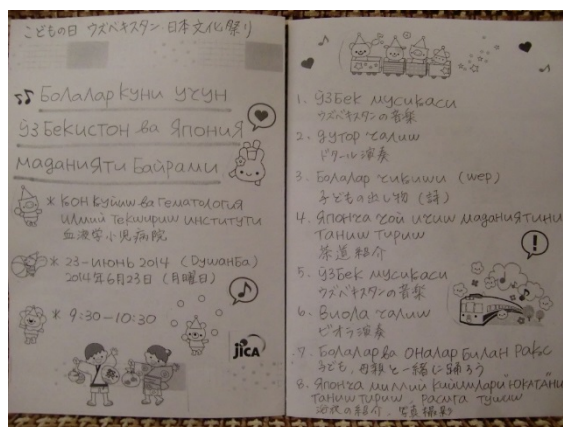 こどもの日 ウズベキスタン・日本文化祭り
Болалар куни учун
ўзбекистон ва Япония
маданияти байрами
* Қон қуйиш ва гематология
илмий текшириш институти
血液学小児病院
* 23-июнь 2014 (Душанба)
2014年6月23日(月曜日)
* 9:30-10:30
jICA
1. ўзбек мусикаси
ウズベキスタンの音楽
2. дутор чалиш
ドタール演奏
3. Болалар чикиши (шер)
子どもの出し物(詩)
4. Японча чой ичиш маданиятини
таништириш
茶道紹介
5. ўзбек мусикаси
ウズベキスタンの音楽
6. Виола чалиш
ビオラ演奏
7. Болалар ва оналар билан ракс
子ども、母親と一緒に踊ろう
8. Японча миллий кийимлари ЮКАТАни
таништириш, расмга тушиш
浴衣の紹介、写真撮影